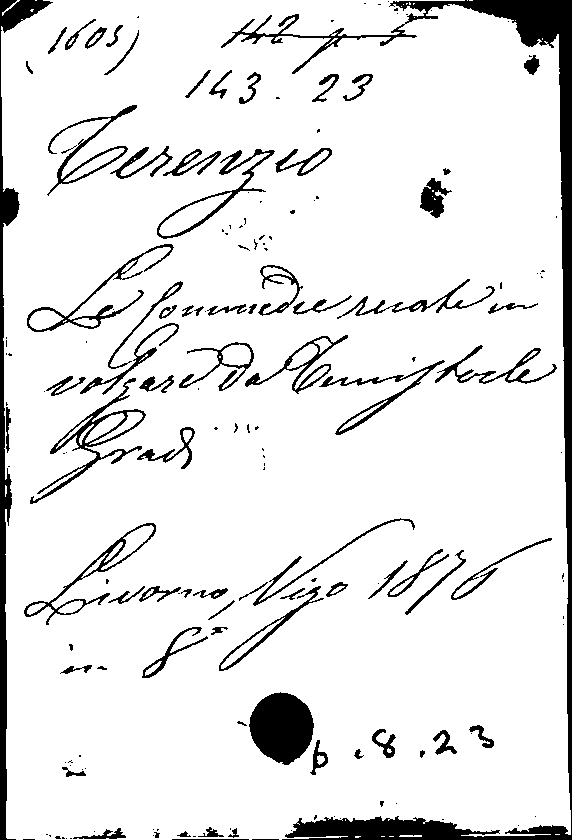 (1603) 142 p. 5
143. 23
Terenzio
Le Commedie recate in
volgare da Temistocle
Gradi
Livorno, Vigo 1876
in 8°
b.8.23